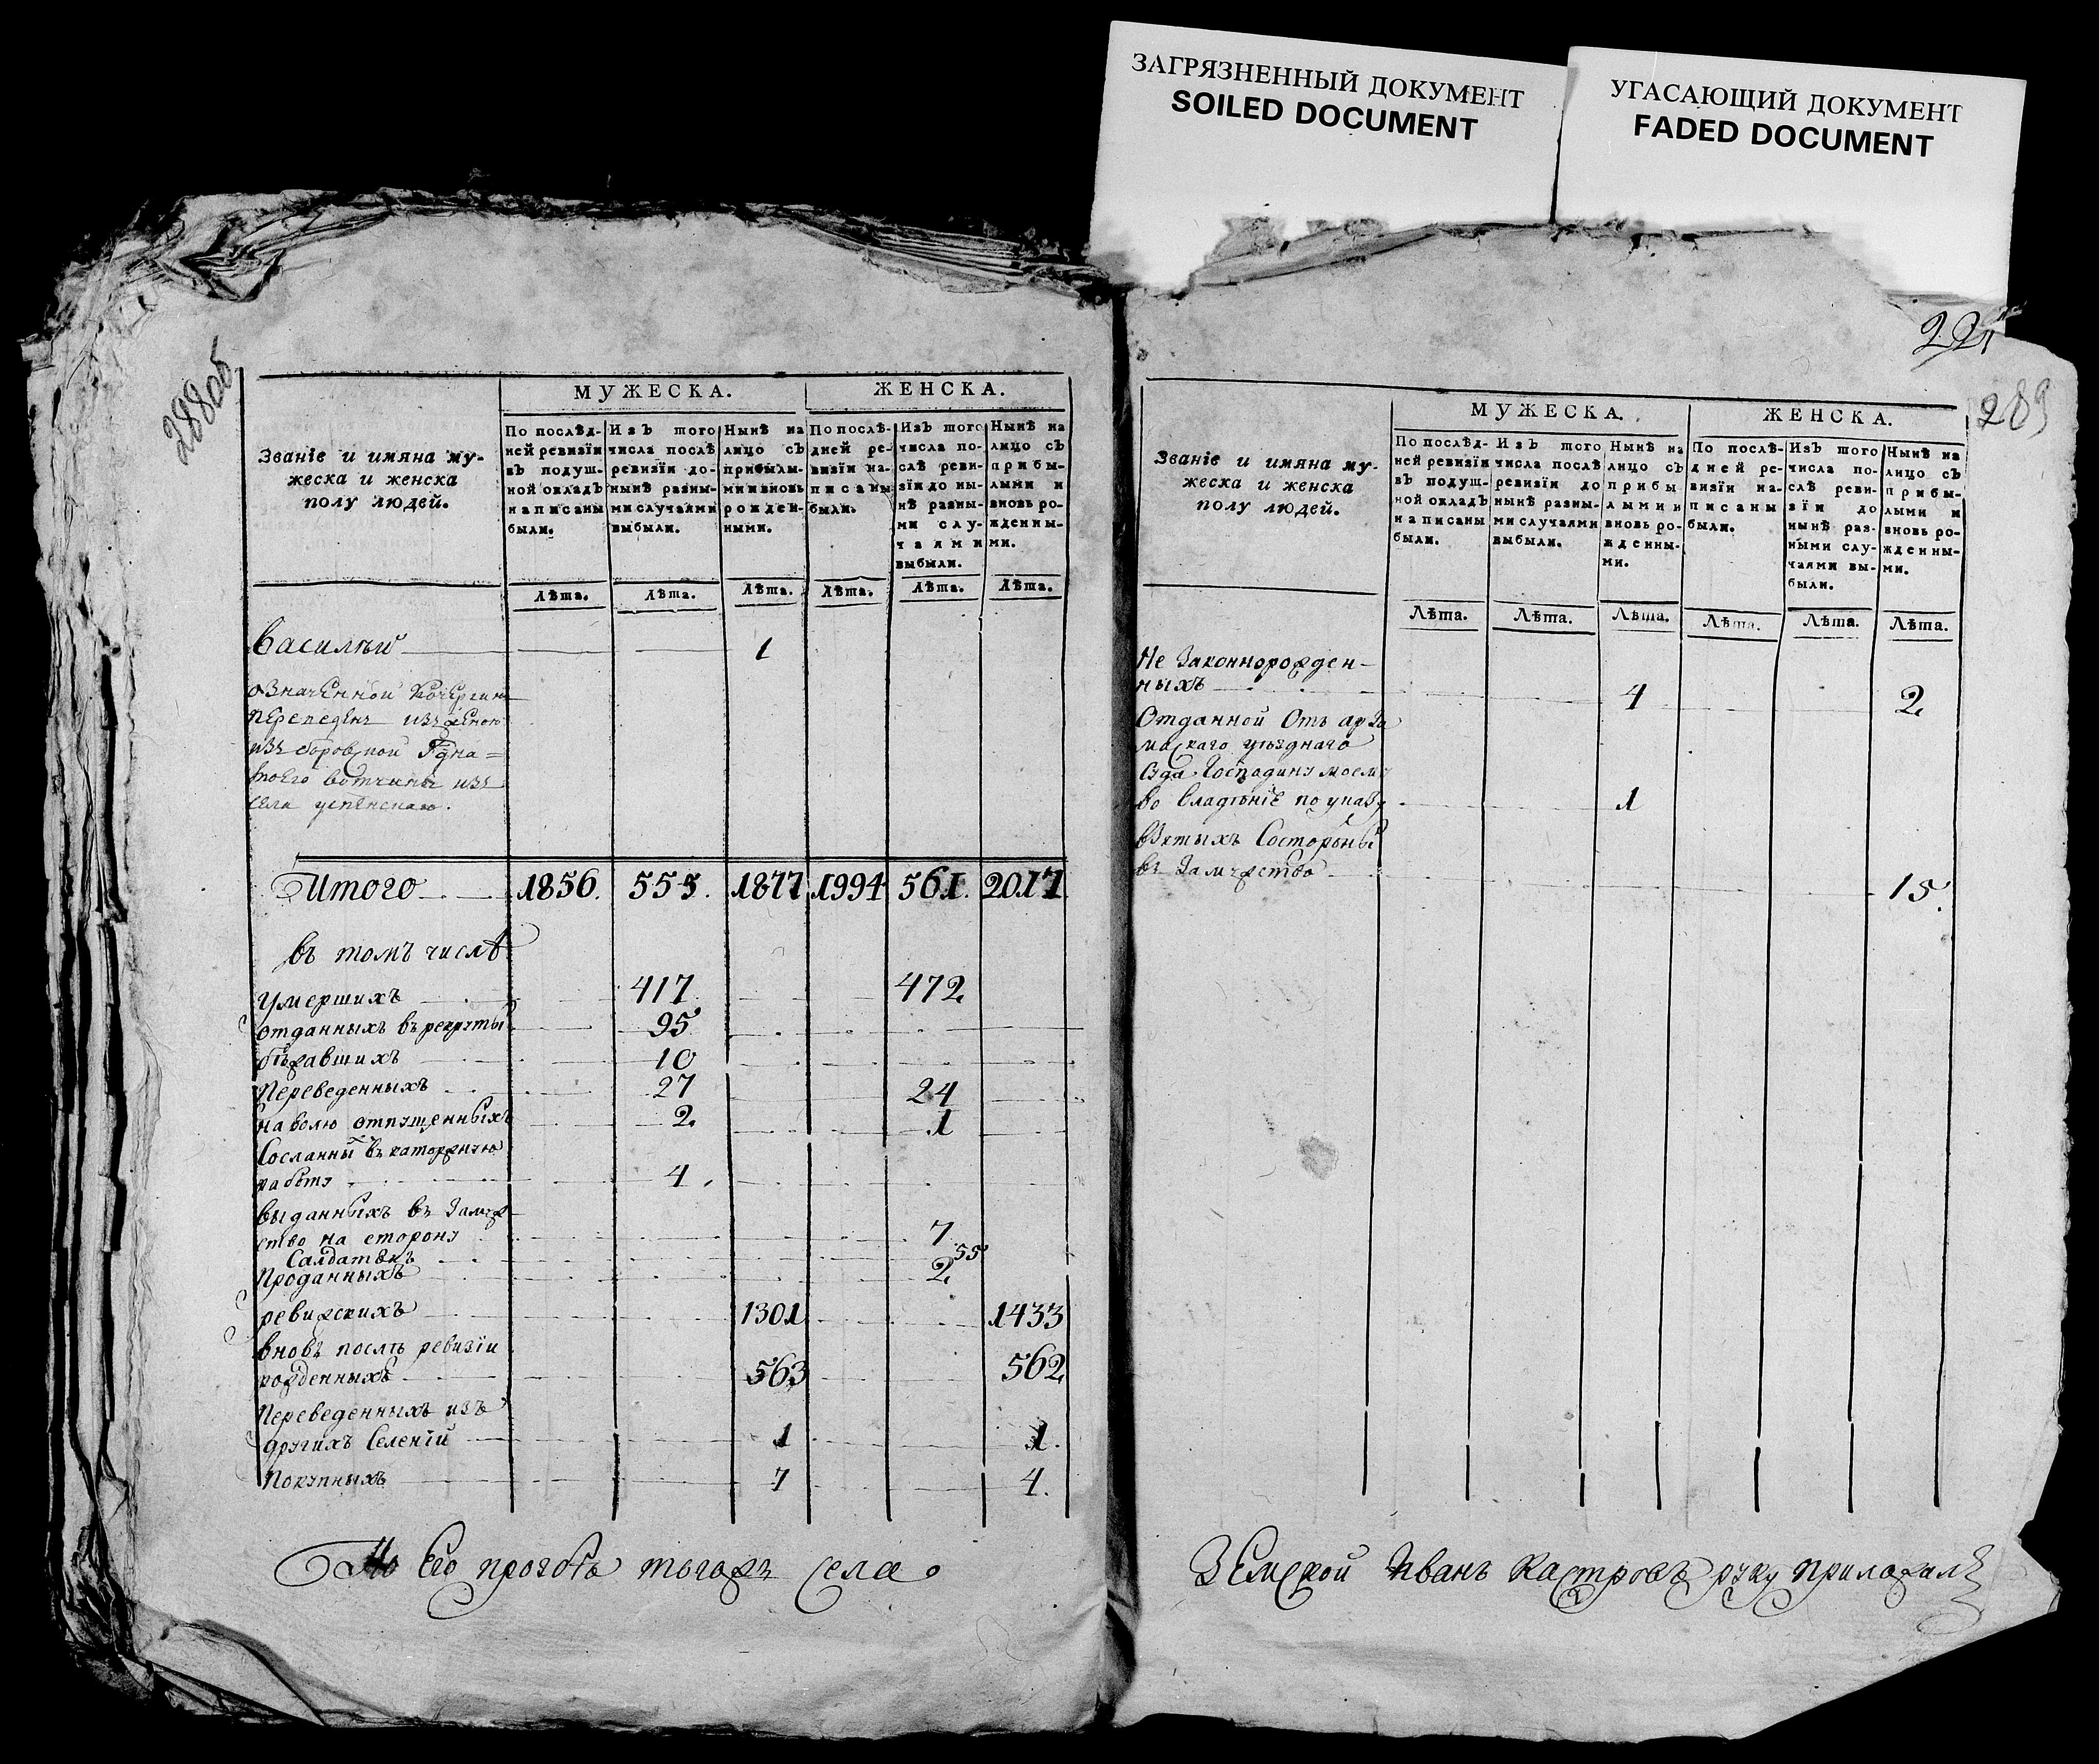 ЗАГРЯЗНЕННЫЙ ДОКУМЕНТ
SOILED DOCUMENT
УГАСАЮЩИЙ ДОКУМЕНТ
FADED DOCUMENT
288об
Званїе и имяна му-
жеска и женска
полу людей.
МУЖЕСКА.
ЖЕНСКА.
По послѣд-
ней ревизїи
въ подуш-
ной окладъ
написаны
были.
Изъ того
числа послѣ
ревизїи до-
нынѣ разны-
ми случаями
выбыли.
Нынѣ на
лицо съ
прибылы-
ми и вновь
рожден-
ными.
По послѣ-
дней ре-
визїи на-
писаны
были.
Изъ того
числа по-
слѣ реви-
зїи до ны-
нѣ разны-
ми слу-
чаями
выбыли.
Нынѣ на
лицо съ
прибы-
лыми и
вновь ро-
жденны-
ми.
Лѣта. Лѣта. Лѣта. Лѣта. Лѣта. Лѣта.
Василей 1
означенной
переведенъ изъ
изъ
вотчины изъ
села успенскаго.
Итого 1856. 555. 1877 1994 561. 2017
въ томъ числѣ
умершихъ 417 472
отданныхъ въ рекруты 95
бѣжавшихъ 10
переведенныхъ 27 24
на волю отпущенныхъ 2 1
Сосланны въ каторжную
работу 4
выданныхъ въ замуж-
ство на сторону 7
Салдатокъ 55
Проданныхъ 2
ревижскихъ 1301 1433
вновь послѣ ревизїи
рожденныхъ 563 562
Переведенныхъ изъ
другихъ селенїй 1 1.
Покупныхъ 7 4.
По Его прозбѣ тогожъ села
289
Званїе и имяна му-
жеска и женска
полу людей.
МУЖЕСКА.
ЖЕНСКА.
По послѣд-
ней ревизїи
въ подуш-
ной окладъ
написаны
были.
Изъ того
числа послѣ
ревизїи до
нынѣ разны-
ми случаями
выбыли.
Нынѣ на
лицо съ
прибы
лыми и
вновь ро-
жденны-
ми.
По послѣ-
дней ре-
визїи на-
писаны
были.
Изъ того
числа по-
слѣ реви-
зїи до
нынѣ раз-
ными слу-
чаями вы-
были.
Нынѣ на
лицо съ
прибы-
лыми и
вновь ро-
жденны-
ми.
Лѣта. Лѣта. Лѣта. Лѣта. Лѣта. Лѣта.
Не законнорожден-
ныхъ 4 2
Отданной Отъ арза
маскаго уѣзднаго
суда Господину моему
во владѣнїе по указу 1
взятыхъ Состороны
въ замужство 15.
Земской Иванъ Кастровъ руку приложилъ